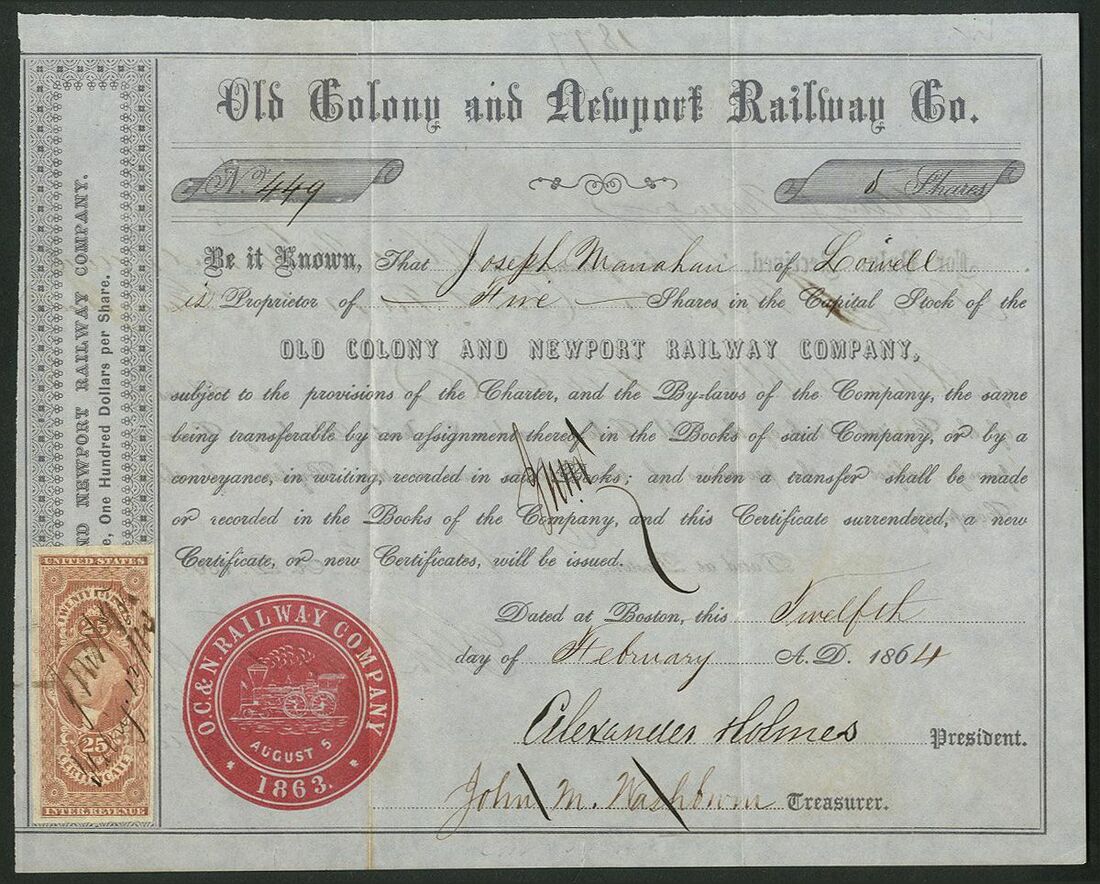 1877
Old Colony and Newport Railway Co.
No. 449
5 Shares
Be it Known, That Joseph Manahan of Lowell
is Proprietor of Five Shares in the Capital Stock of the
OLD COLONY AND NEWPORT RAILWAY COMPANY,
subject to the provisions of the Charter, and the By-laws of the Company, the same
being transferable by an assignment thereof in the Books of said Company, or by a
conveyance, in writing, recorded in said Books; and when a transfer shall be made
or recorded in the Books of the Company, and this Certificate surrendered, a new
Certificate, or new Certificates, will be issued.
Dated at Boston, this Twelfth
day of February A. D. 1864
Alexander Holmes President.
John M. Washburn Treasurer.
O. C. & N. RAILWAY COMPANY
AUGUST 5
1863.
ND NEWPORT RAILWAY COMPANY.
e, One Hundred Dollars per Share.
UNITED STATES
TWENTY FIVE
25
CERTIFICATE
INTER. REVENUE